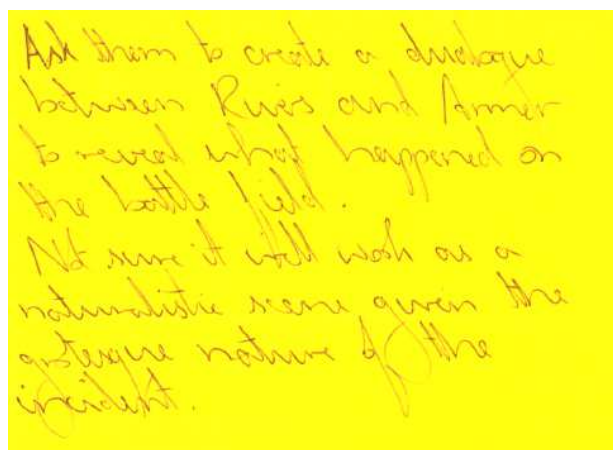 Ask them to create a dialogue
between Rivers and
to reveal what happened on
the battle field.
Not sure it will work as a
naturalistic scene given the
grotesque nature of the
incident.